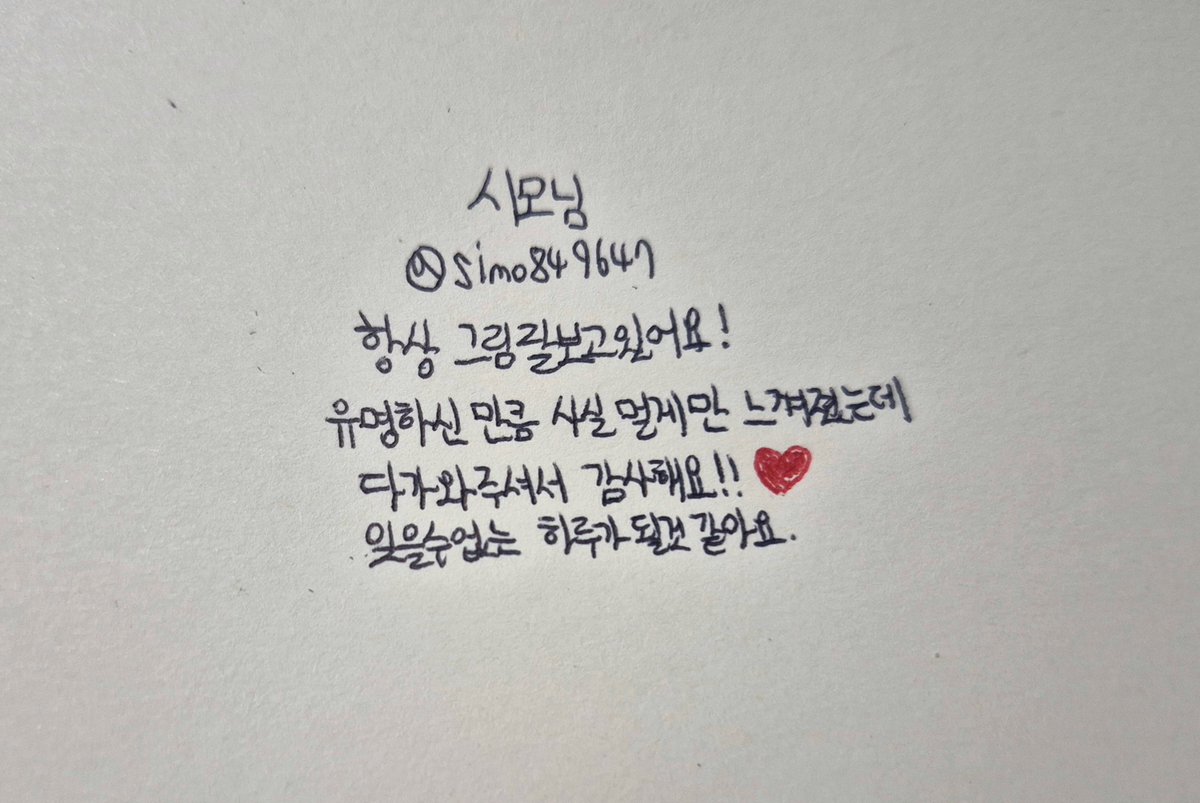 시모님
@simo849647
항상 그림 잘보고있어요!
유명하신 만큼 사실 멀게만 느껴졌는데
다가와주셔서 감사해요!! ♥
잊을수없는 하루가 될것 같아요.